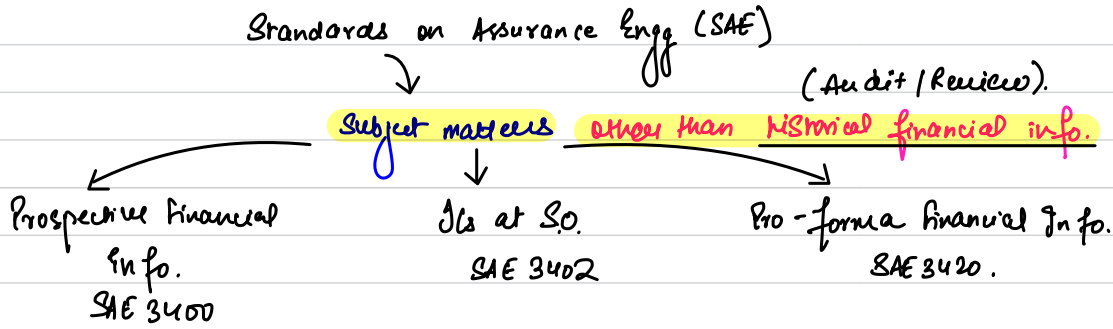 Standards on Assurance Engg (SAE)
(Audit / Review).
Subject matters other than historical financial info.
Prospective Financial Info.
SAE 3400
ICs at S.O.
SAE 3402
Pro-forma Financial Info.
SAE 3420.